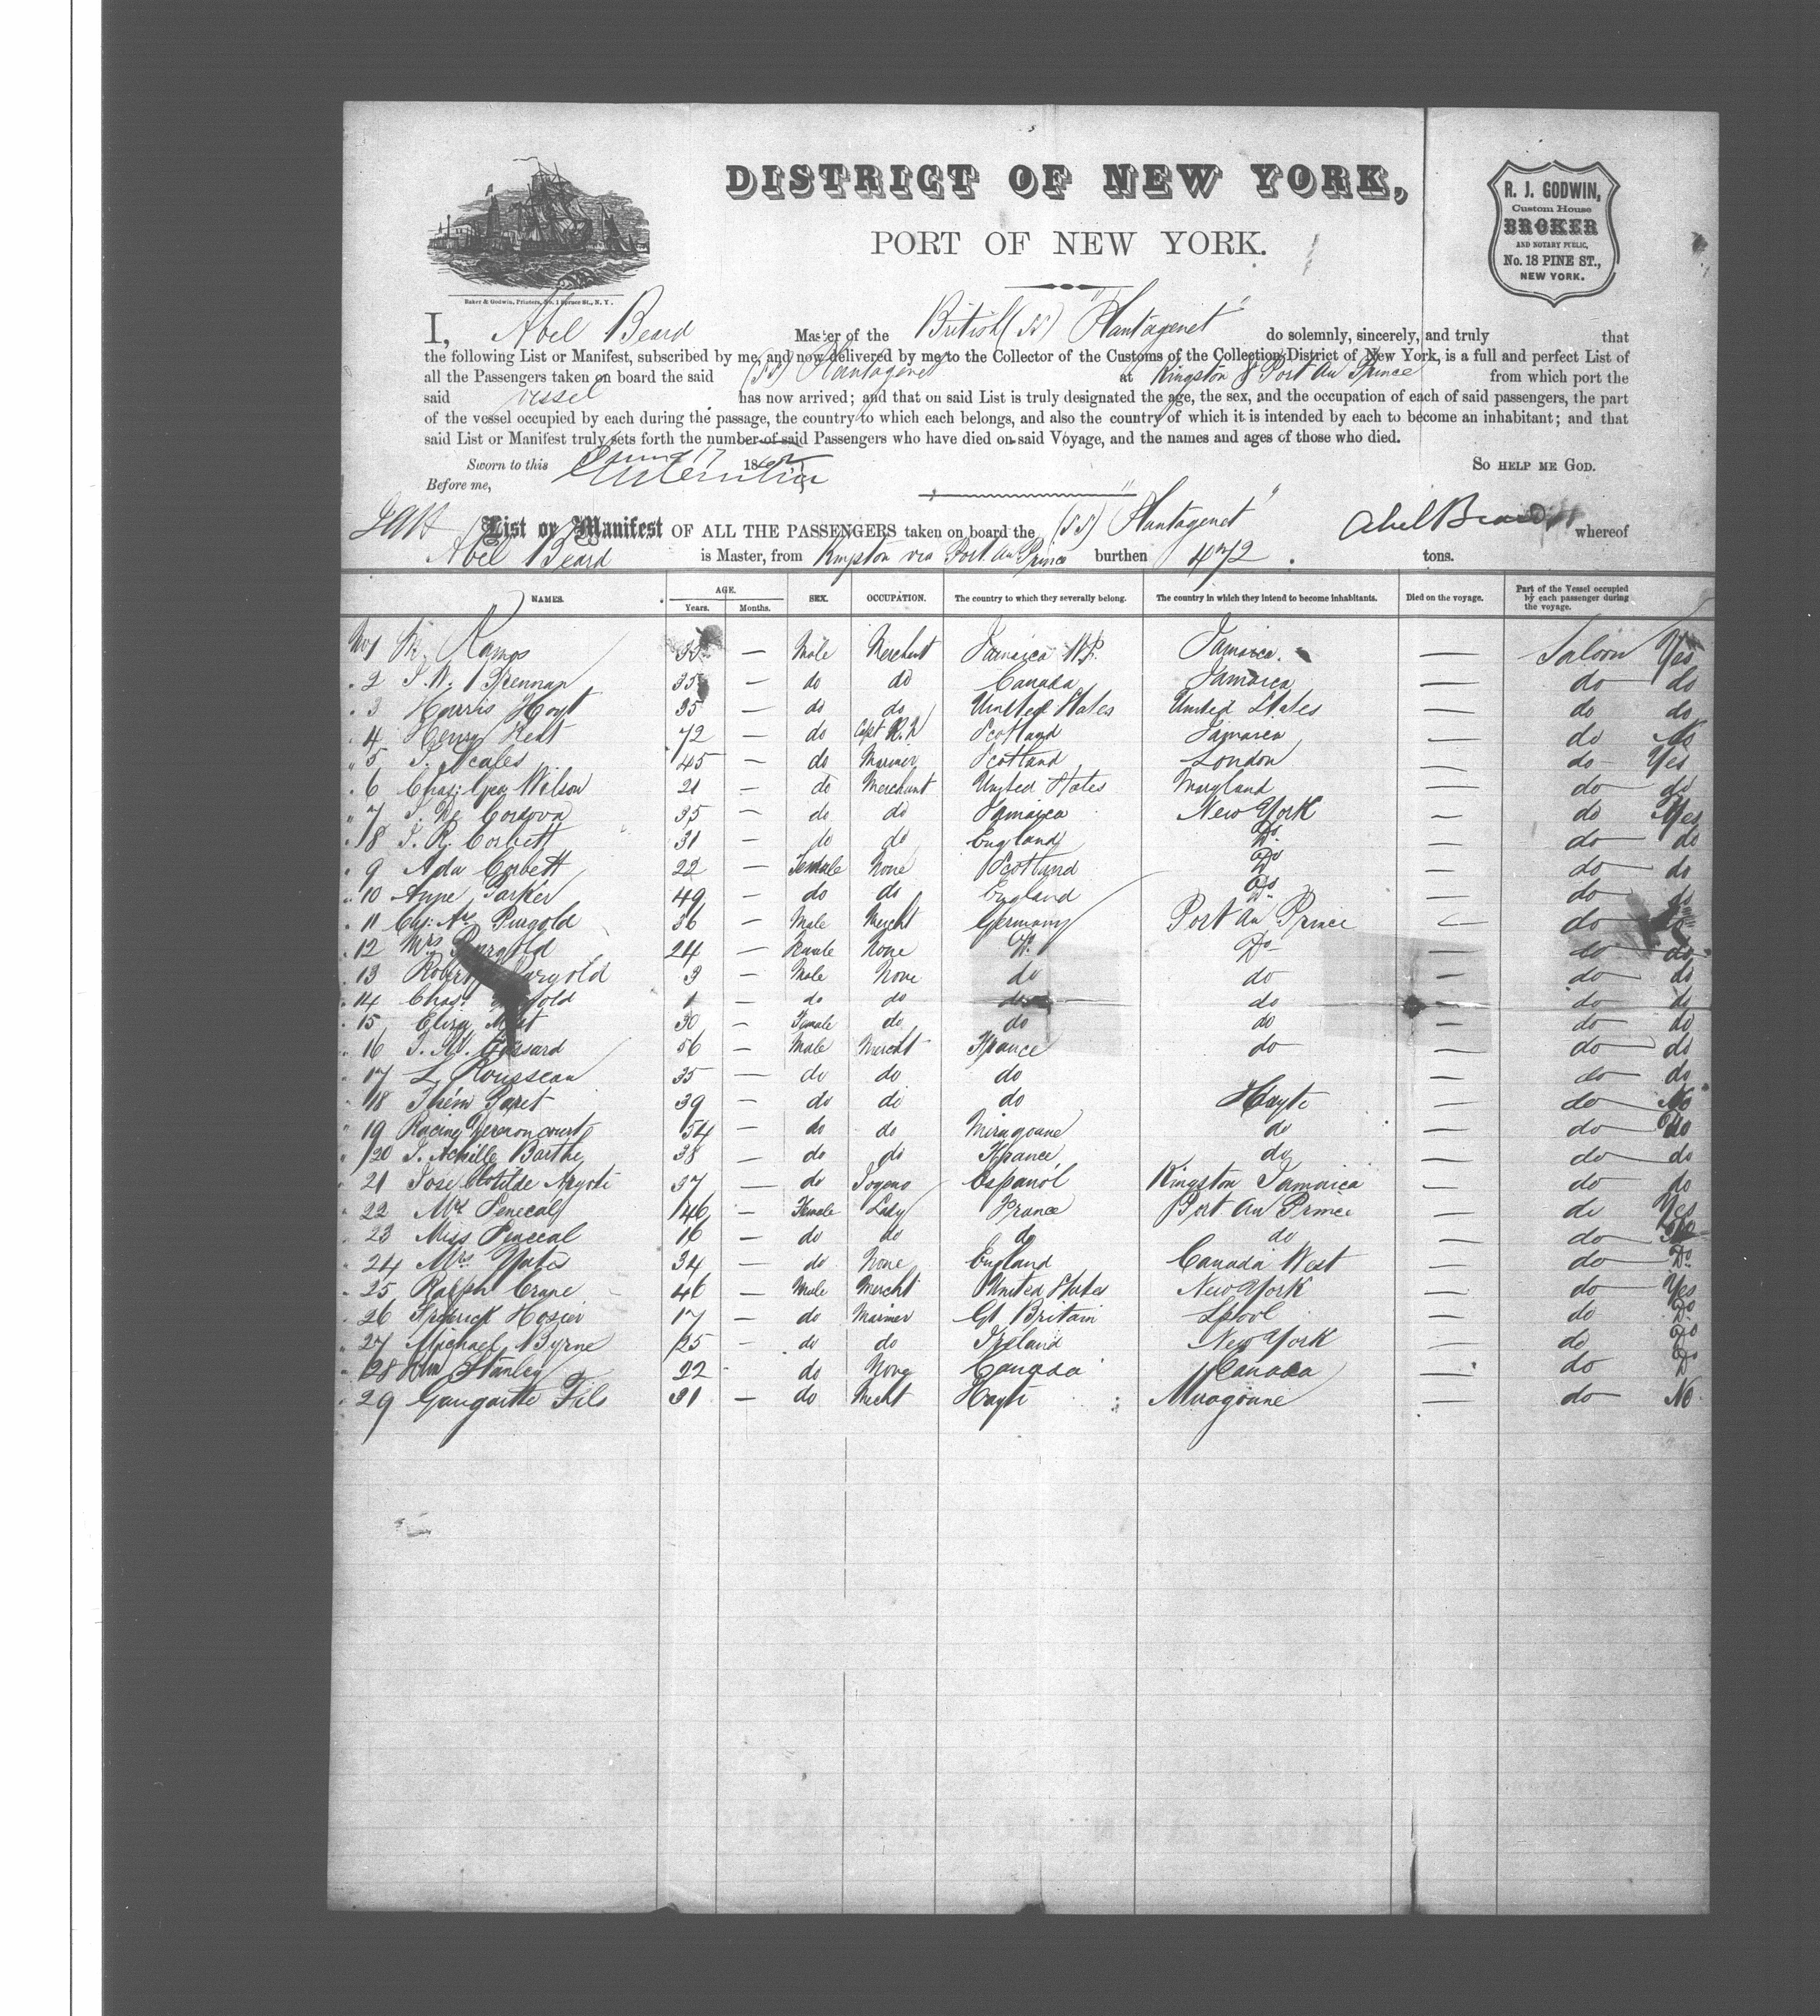 DISTRICT OF NEW YORK,
PORT OF NEW YORK.
R. J. GODWIN,
Custom House
BROKER
AND NOTARY PUBLIC,
No. 18 PINE ST.,
NEW YORK.
Baker & Godwin, Printers, No. 1 Spruce St., N. Y.
I, Abel Beard Master of the British (SS) "Plantagenet" do solemnly, sincerely, and truly that
the following List or Manifest, subscribed by me, and now delivered by me to the Collector of the Customs of the Collection District of New York, is a full and perfect List of
all the Passengers taken on board the said (SS) Plantagenet at Kingston & Port Au Prince from which port the
said vessel has now arrived; and that on said List is truly designated the age, the sex, and the occupation of each of said passengers, the part
of the vessel occupied by each during the passage, the country to which each belongs, and also the country of which it is intended by each to become an inhabitant; and that
said List or Manifest truly sets forth the number of said Passengers who have died on said Voyage, and the names and ages of those who died.
Sworn to this 17 18 So help me God.
Before me,
List or Manifest OF ALL THE PASSENGERS taken on board the (SS) "Plantagenet" Abel Beard whereof
Abel Beard is Master, from Kingston via Port au Prince burthen 472 tons.
NAMES. AGE. Years. Months. SEX. OCCUPATION. The country to which they severally belong. The country in which they intend to become inhabitants. Died on the voyage. Part of the Vessel occupied by each passenger during the voyage.
No 1 M. Ramos 33 — Male Merchant Jamaica W.I. Jamaica. — Saloon Yes
" 2 J. W. Brennan 35 — do do Canada Jamaica — do do
" 3 Harris Hoyt 35 — do do United States United States — do do
" 4 Henry Kent 72 — do Capt R.N Scotland Jamaica — do No
" 5 J. Scales 45 — do Mariner Scotland London — do Yes
" 6 Chas: Geo Wilson 21 — do Merchant United States Maryland — do do
" 7 J. De Cordova 35 — do do Jamaica New York — do Yes
" 8 J. R. Corbett 31 — do do England Do — do do
" 9 Ada Corbett 22 — Female None Scotland Do — do do
" 10 Anne Parker 49 — do do England Do — do do
" 11 Purgold 36 — Male Mercht Germany Port Au Prince — do do
" 12 Mrs Purgold 24 — Female None Do Do — do do
" 13 Robert Purgold 3 — Male None do do — do do
" 14 Chas: Purgold 1 — do do do do — do do
" 15 Eliza 30 — Female do do do — do do
" 16 J. 56 — Male Mercht France do — do do
" 17 L. Rousseau 35 — do do do do — do do
" 18 39 — do do do Hayti — do No
" 19 54 — do do Miragoane do — do do
" 20 J. Achille Barthe 38 — do do France do — do do
" 21 Jose Clotilde 37 — do Español Kingston Jamaica — do do
" 22 Mrs Senecal 46 — Female Lady France Port Au Prince — do Yes
" 23 Miss Senecal 16 — do do do do — do
" 24 Mrs Yates 34 — do None England Canada West — do Do
" 25 Ralph Crane 46 — Male Mercht United States New York — do Yes
" 26 Fredrick Hosier 17 — do Mariner Gt Britain Lpool — do Do
" 27 Michael Byrne 25 — do do Ireland New York — do Do
" 28 Wm Stanley 22 - do None Canada Canada — do Do
" 29 Fils 31 — do Mercht Hayti Miragoane — do No